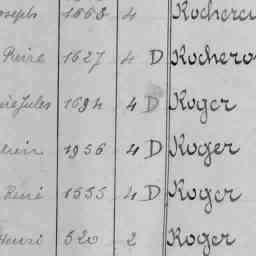 1668 4 Rocher
1627 4 D Rochero
Jules 1694 4 D Roger
1956 4 D Roger
René 1555 4 D Roger
Henri 520 2 Roger